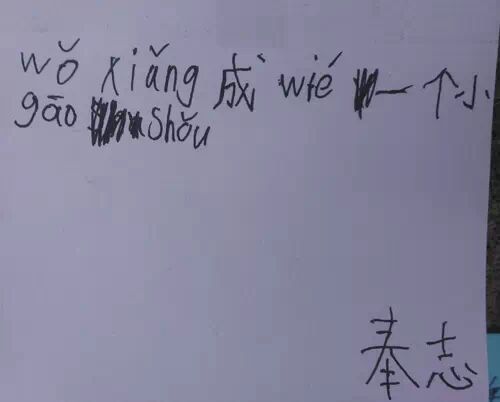 wǒ xiǎng 成 wié 一个小
gāo shǒu
奉志